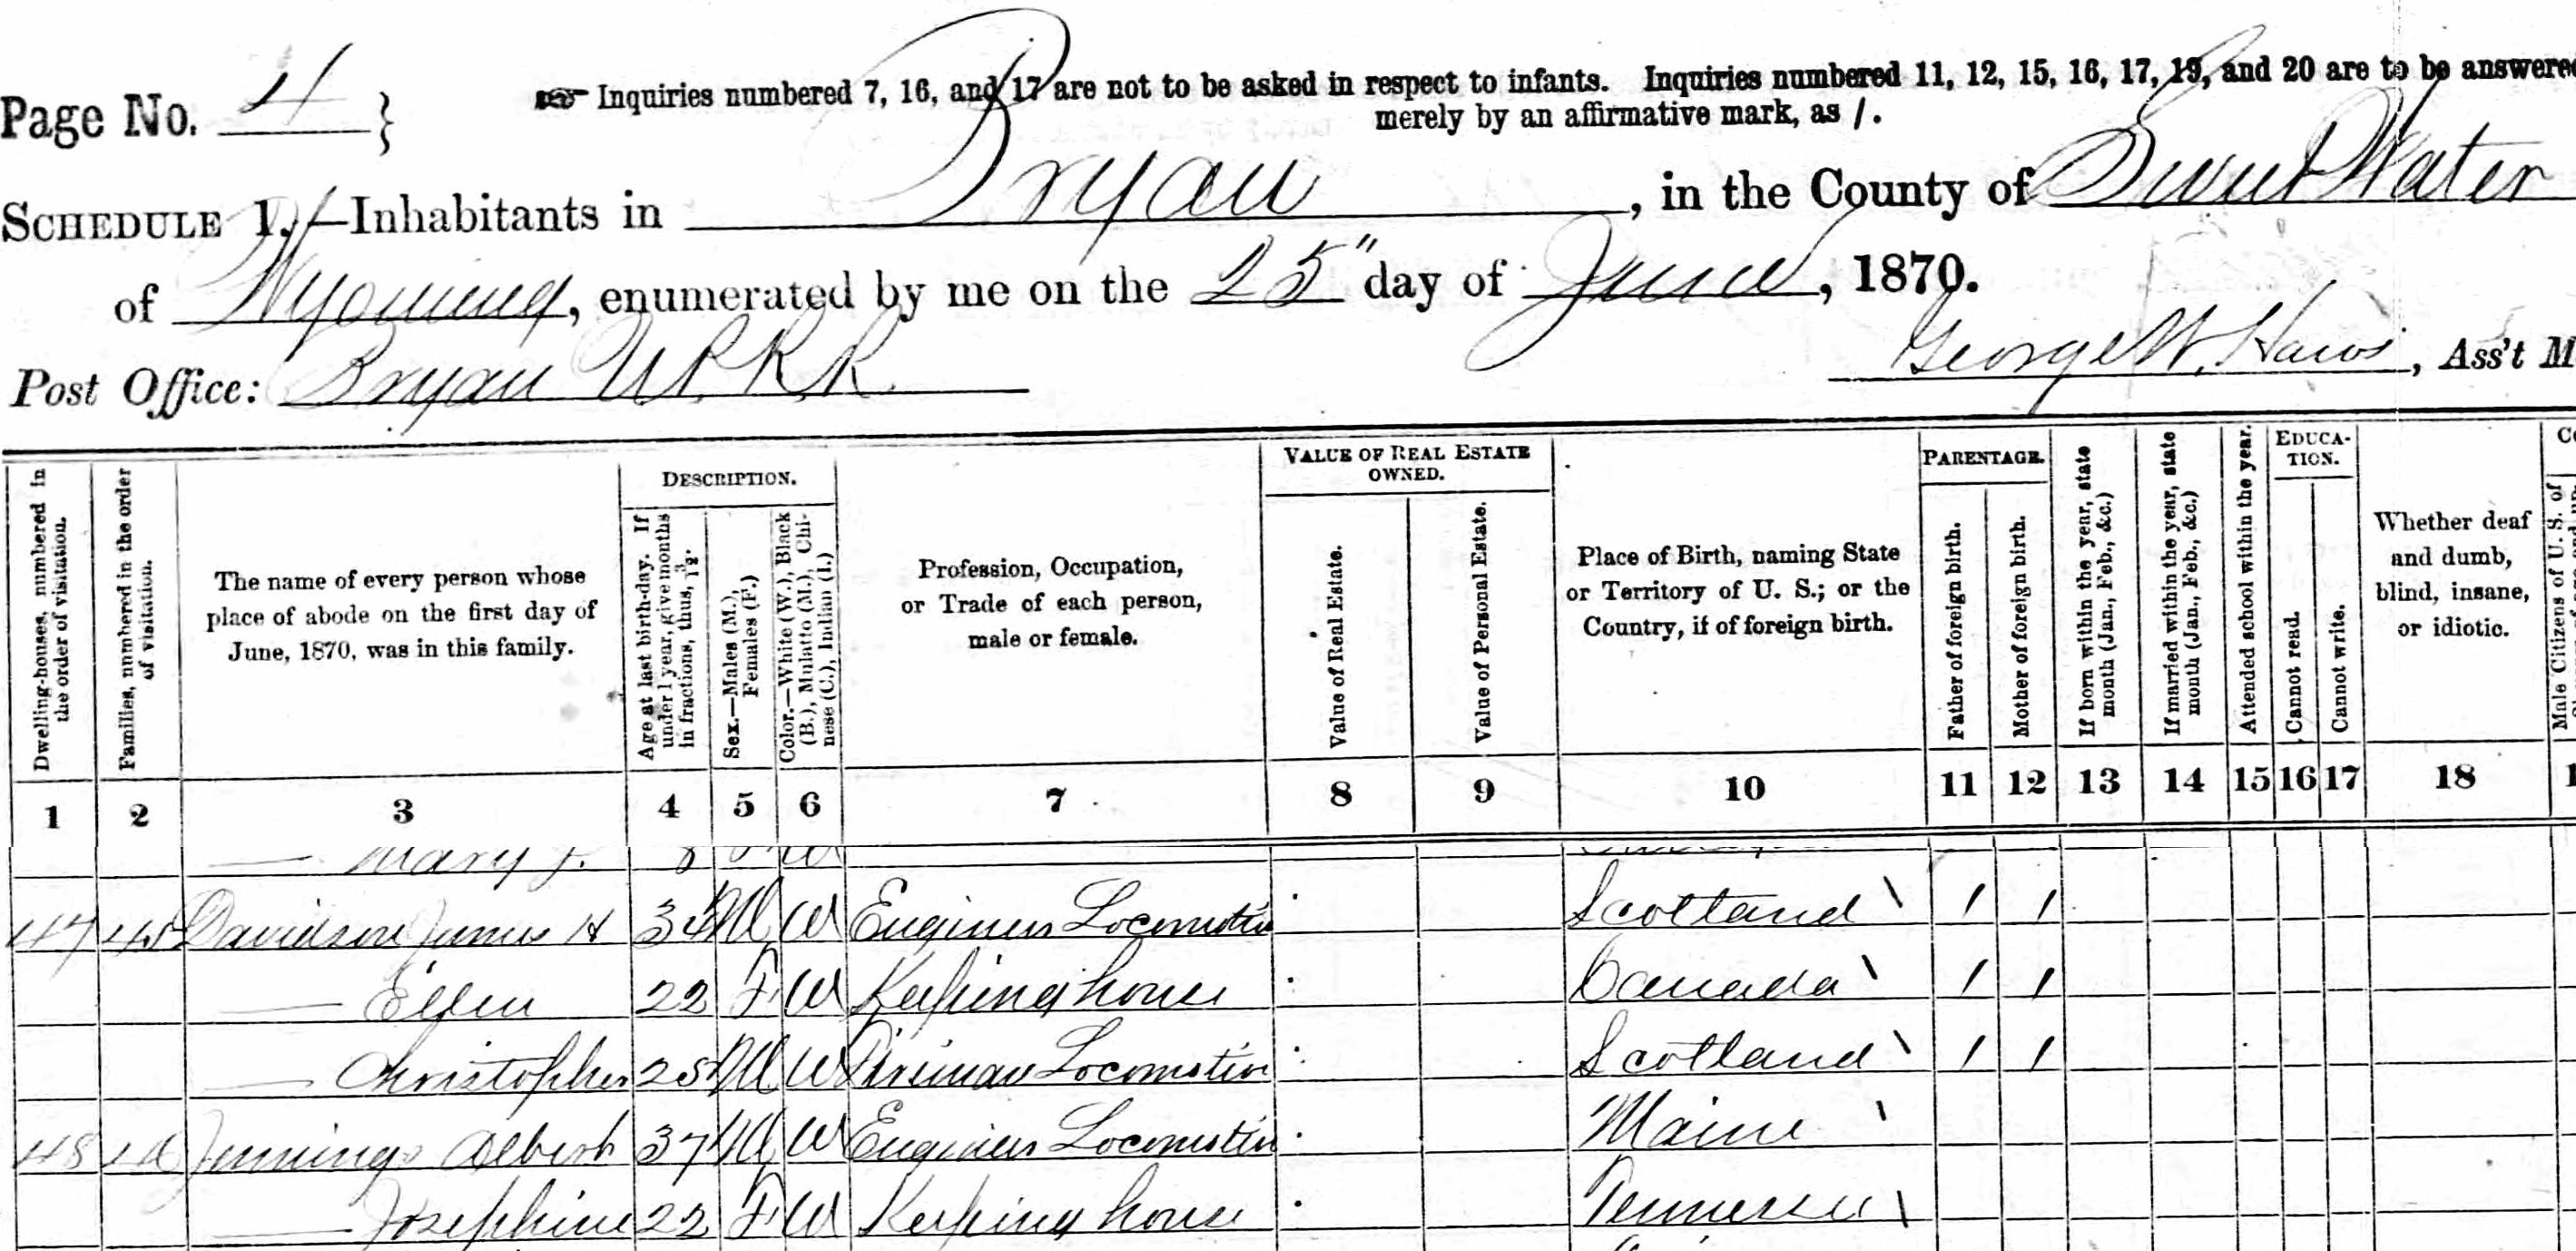 Page No. 4 }
Inquiries numbered 7, 16, and 17 are not to be asked in respect to infants. Inquiries numbered 11, 12, 15, 16, 17, 19, and 20 are to be answered
merely by an affirmative mark, as /.
SCHEDULE 1.—Inhabitants in Bryan, in the County of Sweet Water
of Wyoming, enumerated by me on the 25" day of June, 1870.
Post Office: Bryan U.P.R.R. George W. Haws, Ass't M
Dwelling-houses, numbered in the order of visitation.
Families, numbered in the order of visitation.
The name of every person whose place of abode on the first day of June, 1870, was in this family.
DESCRIPTION.
Age at last birth-day. If under 1 year, give months in fractions, thus, 3/12.
Sex.—Males (M.), Females (F.)
Color.—White (W.), Black (B.), Mulatto (M.), Chinese (C.), Indian (I.)
Profession, Occupation, or Trade of each person, male or female.
VALUE OF REAL ESTATE OWNED.
Value of Real Estate.
Value of Personal Estate.
Place of Birth, naming State or Territory of U. S.; or the Country, if of foreign birth.
PARENTAGE.
Father of foreign birth.
Mother of foreign birth.
If born within the year, state month (Jan., Feb., &c.)
If married within the year, state month (Jan., Feb., &c.)
Attended school within the year.
EDUCATION.
Cannot read.
Cannot write.
Whether deaf and dumb, blind, insane, or idiotic.
Male Citizens of U. S. of
1 2 3 4 5 6 7 8 9 10 11 12 13 14 15 16 17 18 1
— Mary J. 8 F W
47 45 Davidson James H 34 M W Engineer Locomotive Scotland \ / /
— Ellen 22 F W Keeping house Canada \ / /
— Christopher 25 M W Fireman Locomotive Scotland \ / /
48 46 Jennings Albert 37 M W Engineer Locomotive Maine \
— Josephine 22 F W Keeping house Tennessee \